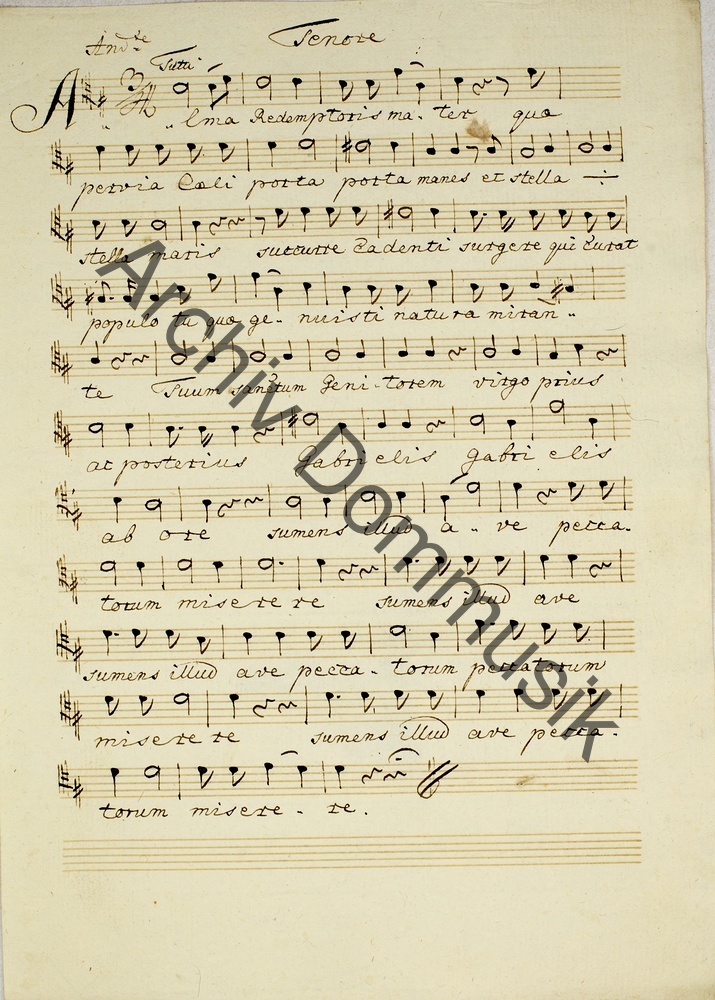 Tenore
Andte
Tutti
3/4
Alma Redemptoris ma - ter quæ
pervia Cœli porta porta manes et stella ÷
stella maris succurre Cadenti surgere qui Curat
populo tu quæ ge - nuisti natura miran -
te Tuum sanctum Geni - torem virgo prius
ac posterius Gabrielis Gabri elis
ab ore sumens illud a - ve pecca -
torum miserere sumens illud ave
sumens illud ave pecca - torum peccatorum
miserere sumens illud ave pecca -
torum misere - re.
Archiv Dommusik